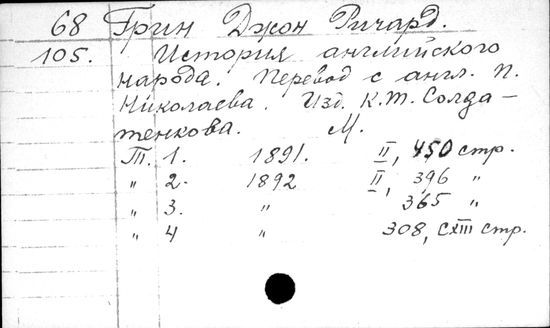 68 Грин Джон Ричард.
105. История английского
народа. Перевод с англ. П.
Николаева. Изд. К.Т. Солда-
тенкова. М.
Т. 1. 1891. II, 450 стр.
„ 2. 1892 II, 396 „
„ 3. „ 365 „
„ 4 „ 308, CXIII стр.